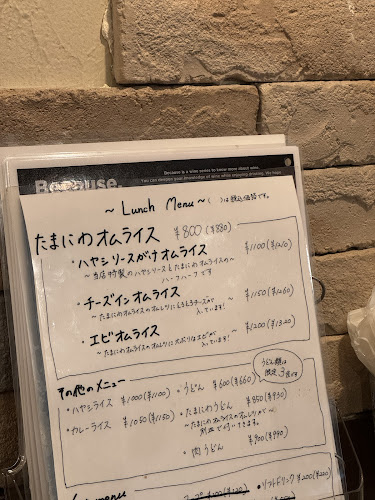 Because is a wine series to know more about wine.
You can deepen your knowledge of wine while enjoying drinking. We hope
Because,
〜 Lunch Menu 〜 ( )は税込価格です。
たまにわオムライス ¥800(¥880)
・ハヤシソースがけオムライス ¥1100(¥1210)
〜当店特製のハヤシソースとたまにわオムライスの〜
ハーフハーフです
・チーズインオムライス 〜 ¥1150(¥1260)
〜たまにわオムライスのオムレツにとろとろチーズが入っています!
・エビオムライス 〜 ¥1200(¥1320)
〜たまにわオムライスのオムレツに大ぶりなエビが入っています!
その他のメニュー
・ハヤシライス ¥1000(¥1100)
・カレーライス ¥1050(¥1150)
・うどん ¥600(¥660)
うどん類は限定3食です
・たまにわうどん ¥850(¥930)
〜たまにわオムライスのオムレツが〜
別皿で付いてきます。
・肉うどん ¥900(¥990)
menu
¥100(¥120)
・ソフトドリンク ¥200(¥220)